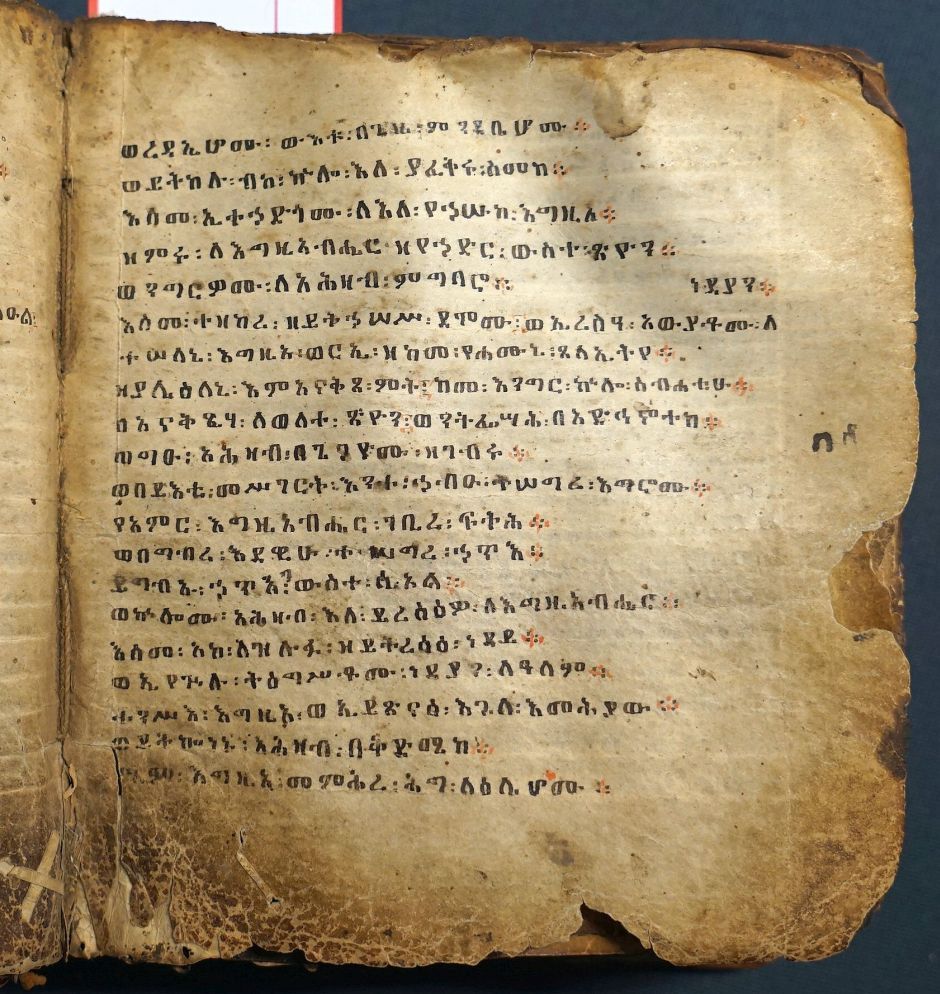 ወረዳኢሆሙ፡ ውእቱ፡በጊዜ፡ምንዳቢሆሙ።
ወይትከሉ፡ብከ፡ኵሎ፡እለ፡ያፈቅሩ፡ስመከ።
እስመ፡ኢተኀድጎሙ፡ለእለ፡የኀሡከ፡እግዚኦ።
ዘምሩ፡ለእግዚአብሔር፡ዘየኀድር፡ውስተ፡ጽዮን።
ወንግርዎሙ፡ለአሕዛብ፡ምግባሮ። ነዳያን።
እስመ፡ተዘከረ፡ዘይትኀሠሥ፡ደሞሙ፡ወኢረስዓ፡አውያቶሙ፡ለ
ተሠለኒ፡እግዚኦ፡ወርኢ፡ዘከመ፡የሐሙኒ፡ጸላኢትየ።
ዘያሌዕለኒ፡እምአናቅጸ፡ሞት፡ከመ፡እንግር፡ኵሎ፡ስብሐቲሁ።
በአናቅጺሃ፡ለወለተ፡ጽዮን፡ወንትፌሣሕ፡በአድኅኖተከ።
ጠግዑ፡አሕዛብ፡በጌጋዮሙ፡ዘገብሩ።
ወበይእቲ፡መሥገርት፡እንተ፡ኀብዑ፡ተሠግረ፡እግሮሙ።
የአምር፡እግዚአብሔር፡ገቢረ፡ፍትሕ።
ወበግብረ፡እደዊሁ፡ተሠግረ፡ኀጥእ።
ይግብኡ፡ኀጥኣን፡ውስተ፡ሲኦል።
ወኵሎሙ፡አሕዛብ፡እለ፡ይረስዕዎ፡ለእግዚአብሔር።
እስመ፡አኮ፡ለዝሉፉ፡ዘይትረሳዕ፡ነዳይ።
ወኢየኀጕሉ፡ትዕግሥቶሙ፡ነዳያን፡ለዓለም።
ተንሥእ፡እግዚኦ፡ወኢይጽናዕ፡እጓለ፡እመሕያው።
ወይትኰነኑ፡አሕዛብ፡በቅድሜከ።
ሢም፡እግዚኦ፡መምሕረ፡ሕግ፡ለዕሌሆሙ።